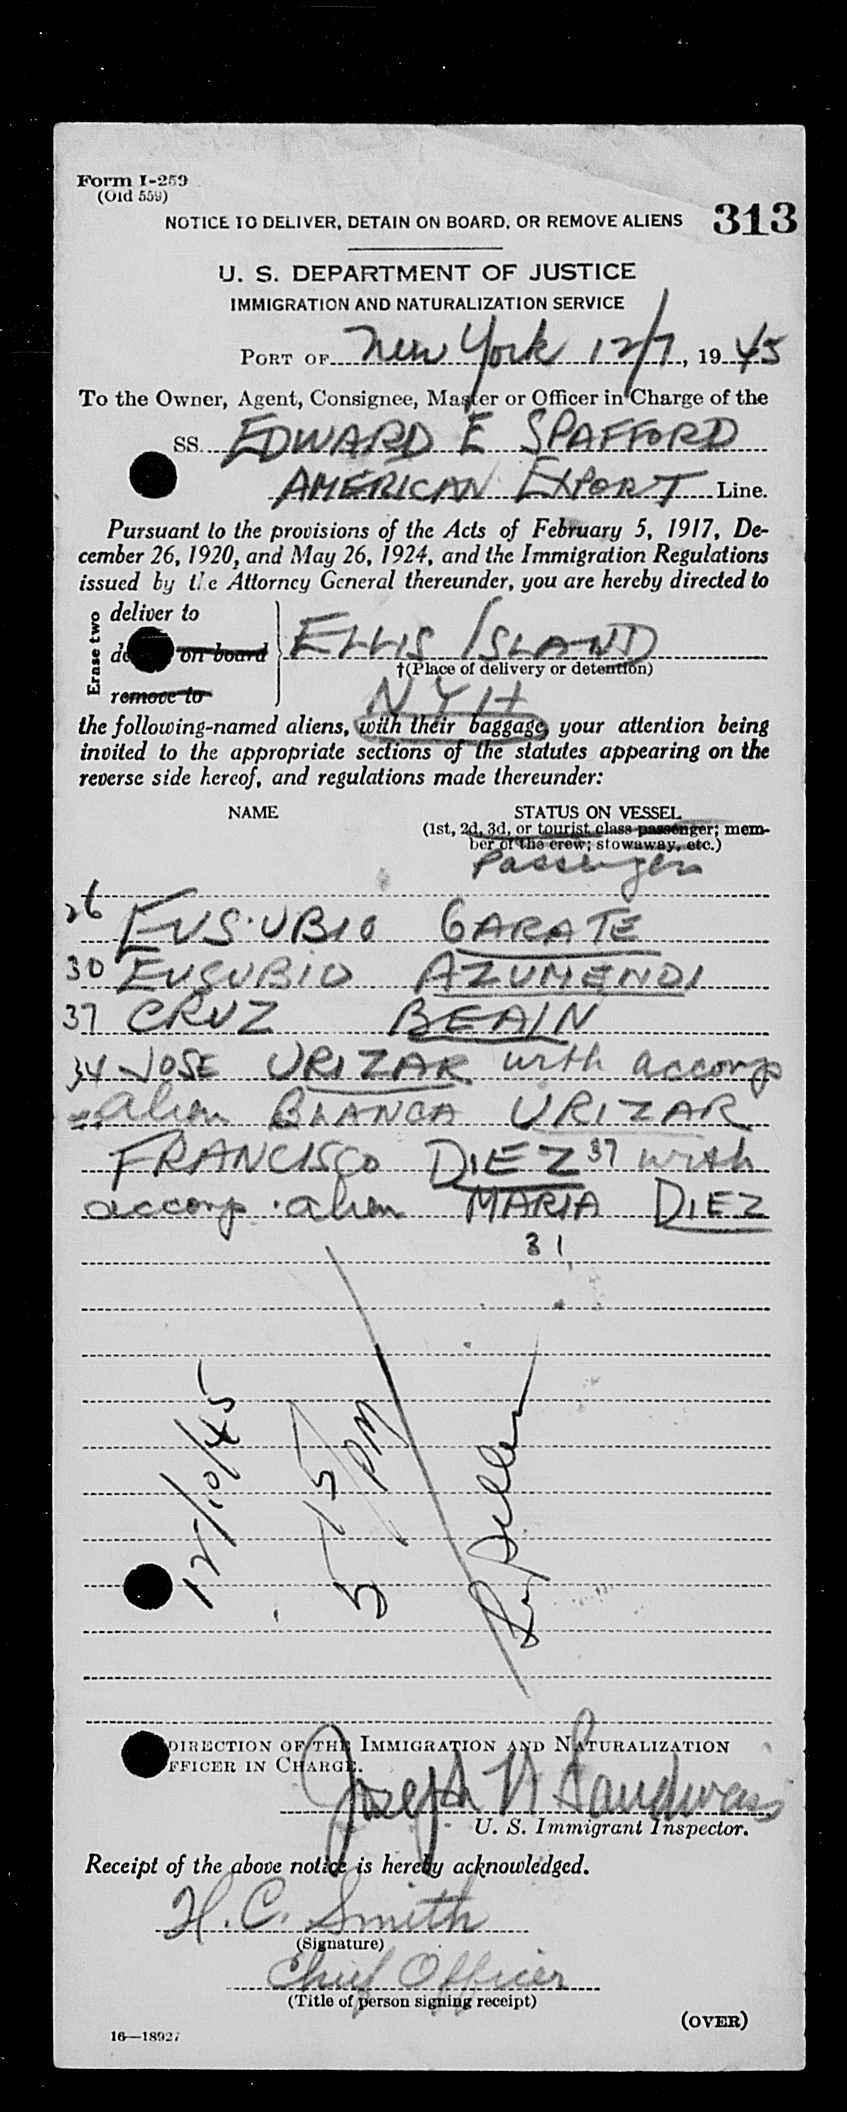 Form I-259
(Old 559)
NOTICE TO DELIVER, DETAIN ON BOARD, OR REMOVE ALIENS 313
U. S. DEPARTMENT OF JUSTICE
IMMIGRATION AND NATURALIZATION SERVICE
PORT OF New York 12/7, 1945
To the Owner, Agent, Consignee, Master or Officer in Charge of the
SS. EDWARD E SPAFFORD
AMERICAN EXPORT Line.
Pursuant to the provisions of the Acts of February 5, 1917, De-
cember 26, 1920, and May 26, 1924, and the Immigration Regulations
issued by the Attorney General thereunder, you are hereby directed to
Erase two
deliver to
on board
remove to
ELLIS ISLAND
†(Place of delivery or detention)
NYH
the following-named aliens, with their baggage, your attention being
invited to the appropriate sections of the statutes appearing on the
reverse side hereof, and regulations made thereunder:
NAME STATUS ON VESSEL
(1st, 2d, 3d, or tourist class passenger; mem-
ber of the crew; stowaway, etc.)
Passenger
26 EUSUBIO GARATE
30 EUSUBIO AZUMENDI
37 CRUZ BEAIN
34 JOSE URIZAR with accomp
alien BLANCA URIZAR
FRANCISCO DIEZ 37 with
accomp. alien MARIA DIEZ
31
12/10/45
5 15 PM
DIRECTION OF THE IMMIGRATION AND NATURALIZATION
FFICER IN CHARGE.
Joseph N
U. S. Immigrant Inspector.
Receipt of the above notice is hereby acknowledged.
H. C. Smith
(Signature)
Chief Officer
(Title of person signing receipt)
(OVER)
16—18927